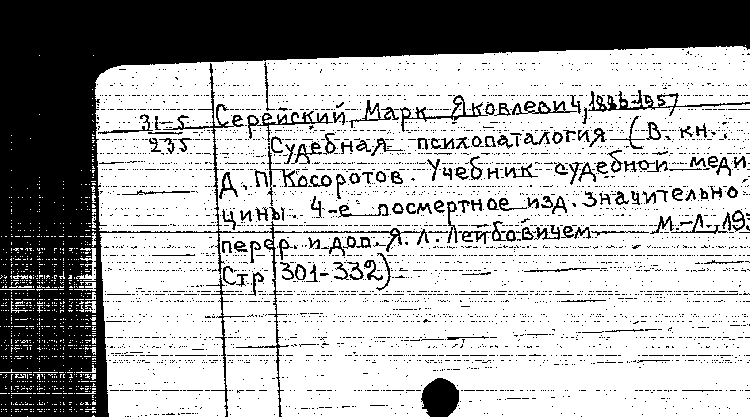 31-5
235
Серейский, Марк Яковлевич, 1886-1957
Судебная психопаталогия (В. кн.:
Д. П. Косоротов. Учебник судебной меди
цины. 4-е посмертное изд. значительно
перер. и доп. Я. Л. Лейбовичем. М.-Л., 193
Стр 301-332)